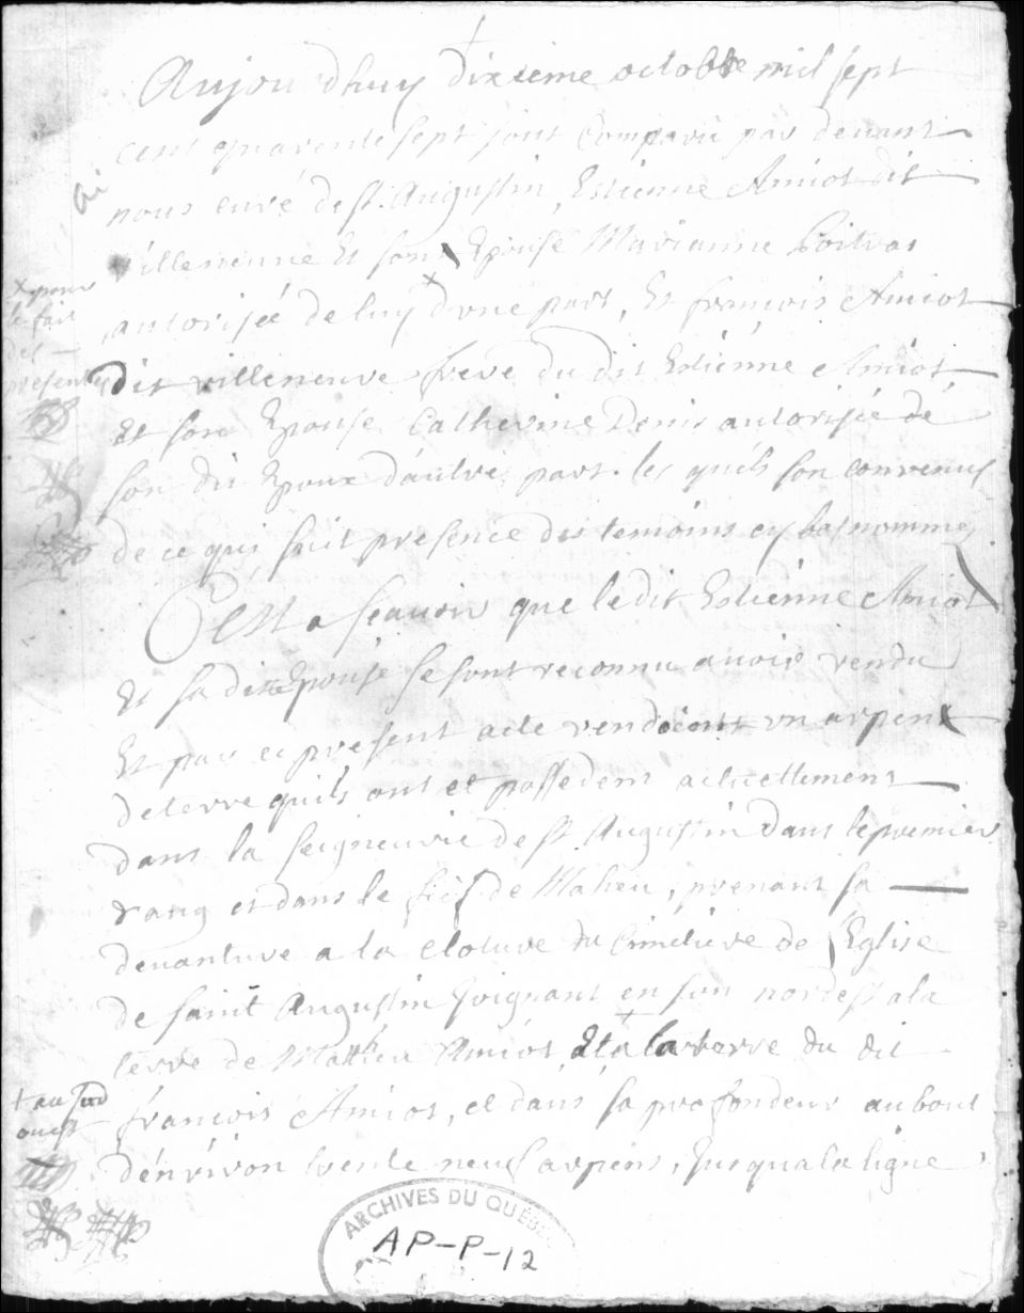 Aujourdhuy dixieme octobre mil sept
cent quarente sept sont comparu par devant
nous curé de st. Augustin, Estienne Amiot dit
villeneuve Et son Epouse Marianne Poitras
autorisée de luy + d'vne part, Et francois Amiot
+ pour
le fait
des
presentes
dit villeneuve frere du dit Estienne Amiot
Et son Epouse Catherine Denis autorisée de
son dit Epoux d'aultre part. les quels son convenus
de ce qui suit presence des temoins cy bas nommés
C'est a scavoir que le dit Estienne Amiot
Et sa dite Epouse se sont reconnu avoir vendu
Et par ce present acte vendent vn arpent
de terre quils ont et possedent actuellement
dans la seigneurie de st. Augustin dans le premier
rang et dans le fief de Maheu, prenant sa
devanture a la cloture du Cimetiere de l'Eglise
de saint Augustin joignant en son nordest a la
terre de Matthieu Amiot, Et + a la terre du dit
+ au sud
ouest
francois Amiot, et dans sa profondeur au bout
d'environ trente neuf arpens, jusqua la ligne
ARCHIVES DU QUÉBEC
AP-P-12